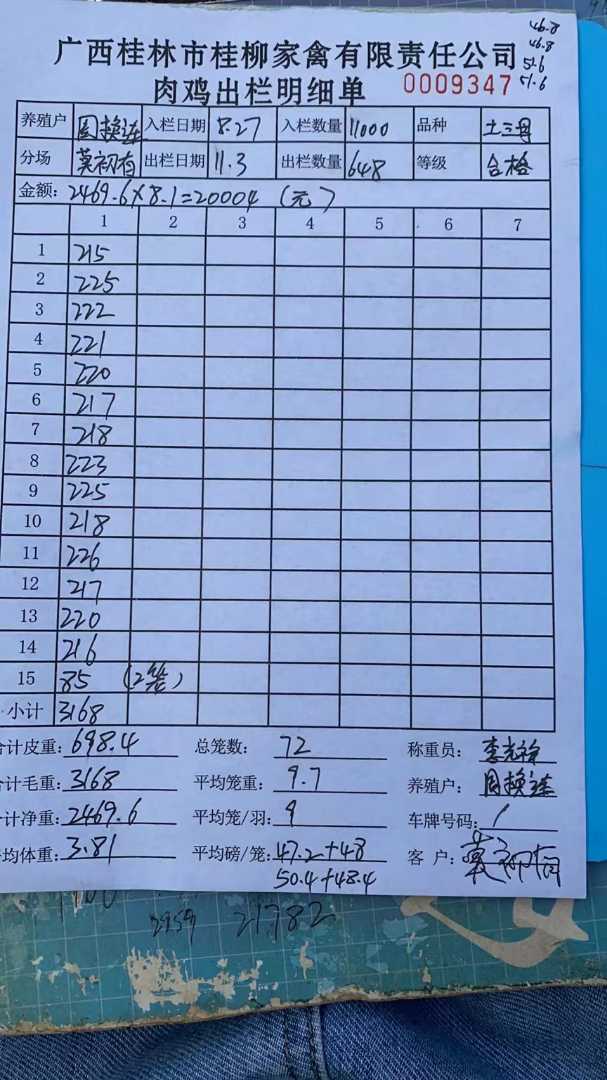 46.8
46.8
51.6
51.6
广西桂林市桂柳家禽有限责任公司
肉鸡出栏明细单 0009347
养殖户 周换连 入栏日期 8.27 入栏数量 11000 品种 土三号
分场 莫初有 出栏日期 11.3 出栏数量 648 等级 合格
金额: 2469.6×8.1=20004 (元)
1 2 3 4 5 6 7
1 215
2 225
3 222
4 221
5 220
6 217
7 218
8 223
9 225
10 218
11 226
12 217
13 220
14 216
15 85 (2笼)
小计 3168
合计皮重: 698.4 总笼数: 72 称重员: 李光
合计毛重: 3168 平均笼重: 9.7 养殖户: 周换连
合计净重: 2469.6 平均笼/羽: 9 车牌号码: /
平均体重: 3.81 平均磅/笼: 47.2+48 客户:
50.4+48.4
2959 21782